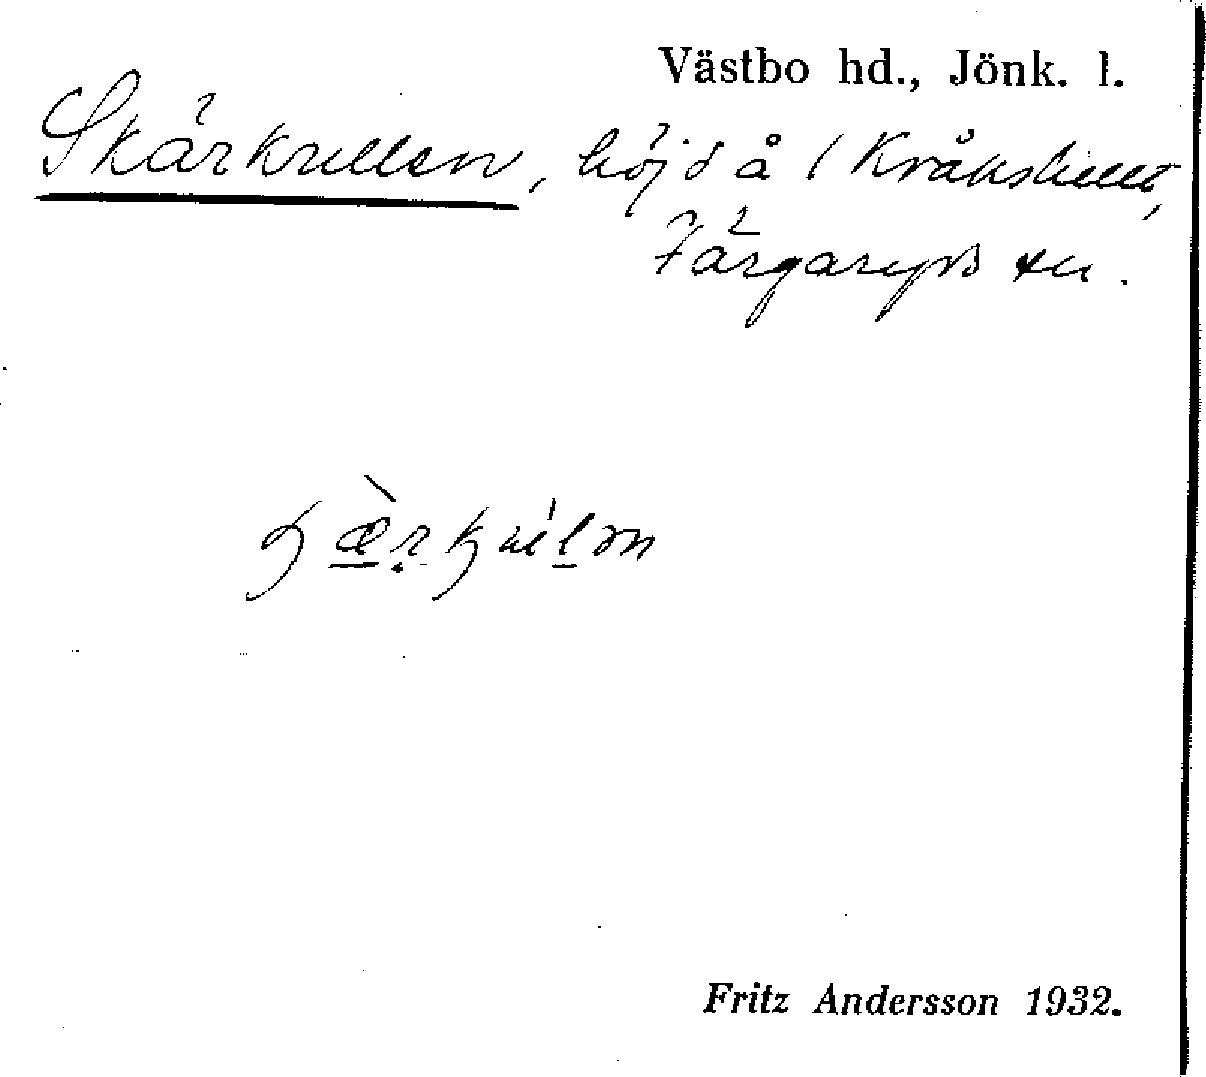 Västbo hd., Jönk. l.
Skärkullen, höjd å / Kråkshult,
Färgaryds sn.
Fritz Andersson 1932.